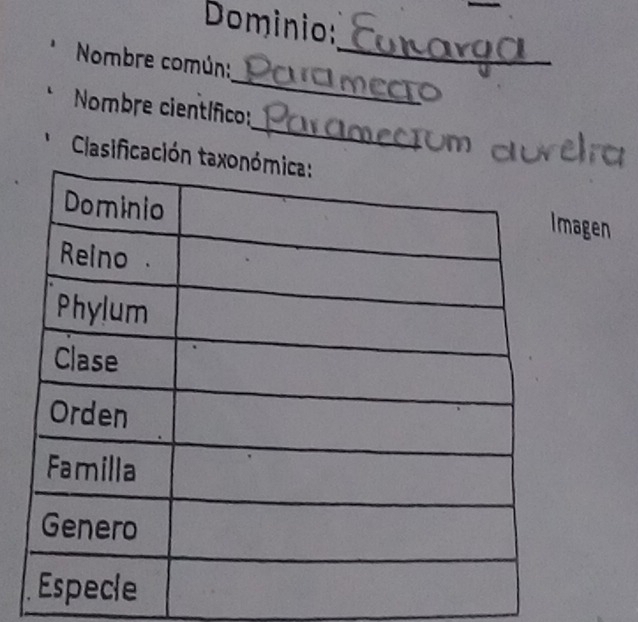 Dominio: Eukarya
Nombre común: Paramecio
Nombre científico: Paramecium aurelia
Clasificación taxonómica:
Imagen
Dominio
Reino
Phylum
Clase
Orden
Familia
Genero
Especie